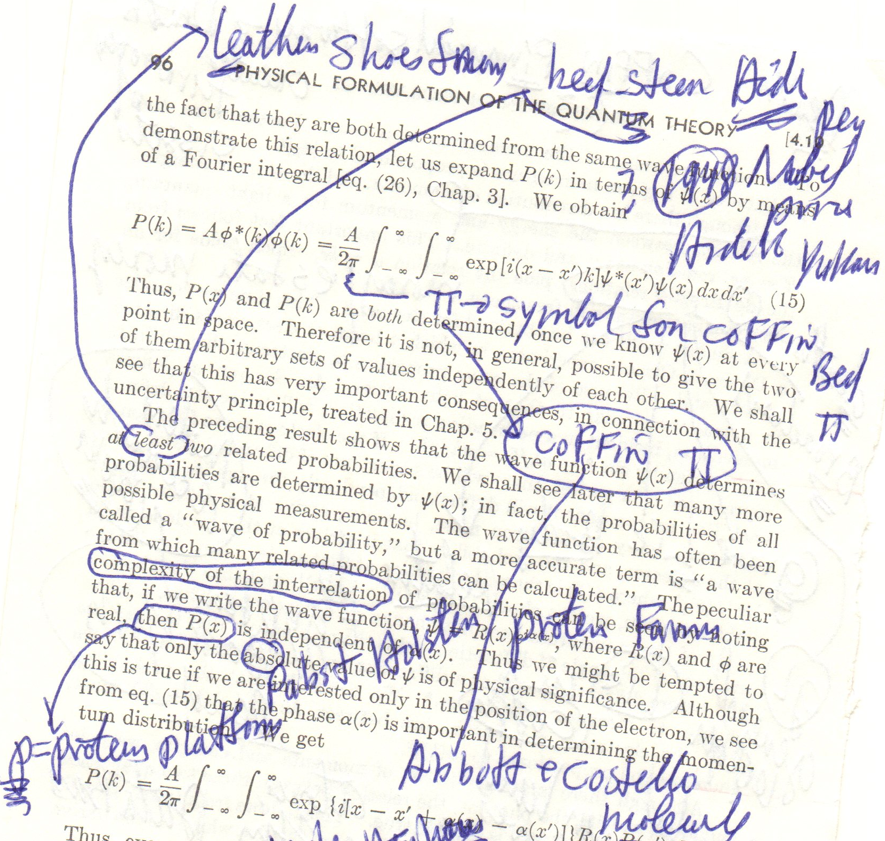 leather Shoes from beef steer Hide
96 PHYSICAL FORMULATION OF THE QUANTUM THEORY [4.1
the fact that they are both determined from the same wave function. To
demonstrate this relation, let us expand P(k) in terms of ψ(x) by means
of a Fourier integral [eq. (26), Chap. 3]. We obtain
? 1948 Nobel
P(k) = Aφ*(k)φ(k) = A/2π ∫_{-∞}^{∞} ∫_{-∞}^{∞} exp[i(x − x′)k]ψ*(x′)ψ(x) dx dx′ (15)
π → symbol for COFFIN
Thus, P(x) and P(k) are both determined once we know ψ(x) at every
point in space. Therefore it is not, in general, possible to give the two
of them arbitrary sets of values independently of each other. We shall
see that this has very important consequences, in connection with the
uncertainty principle, treated in Chap. 5.
Bed
π
COFFIN π
The preceding result shows that the wave function ψ(x) determines
at least two related probabilities. We shall see later that many more
probabilities are determined by ψ(x); in fact, the probabilities of all
possible physical measurements. The wave function has often been
called a "wave of probability," but a more accurate term is "a wave
from which many related probabilities can be calculated." The peculiar
complexity of the interrelation of probabilities can be seen by noting
that, if we write the wave function, ψ = R(x)e, where R(x) and φ are
real, then P(x) is independent of α(x). Thus we might be tempted to
say that only the absolute value of ψ is of physical significance. Although
this is true if we are interested only in the position of the electron, we see
from eq. (15) that the phase α(x) is important in determining the momen-
tum distribution. We get
Pabst Holstein protein Farms
p = protein platform
Abbott & Costello
P(k) = A/2π ∫_{-∞}^{∞} ∫_{-∞}^{∞} exp {i[x − x′ + α(x) − α(x′)]}
molecule
Thus